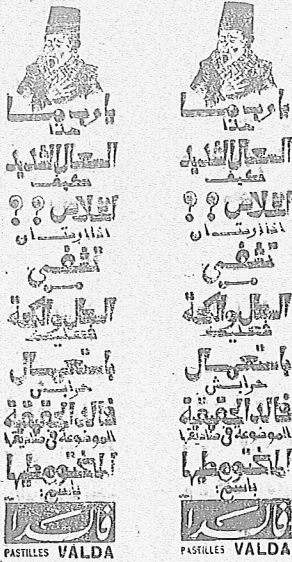 يا رب ما
هذا
السعال الشديد
كيف
الخلاص ؟؟
اذا اردت ان
تشفى
من
السعال والكحة
فعليك
باستعمال
حرابش
فالدا الحقيقة
الموضوعة في صناديقها
المختوم عليها
باسم:
فالدا
PASTILLES VALDA
يا رب ما
هذا
السعال الشديد
كيف
الخلاص ؟؟
اذا اردت ان
تشفى
من
السعال والكحة
فعليك
باستعمال
حرابش
فالدا الحقيقة
الموضوعة في صناديقها
المختوم عليها
باسم:
فالدا
PASTILLES VALDA